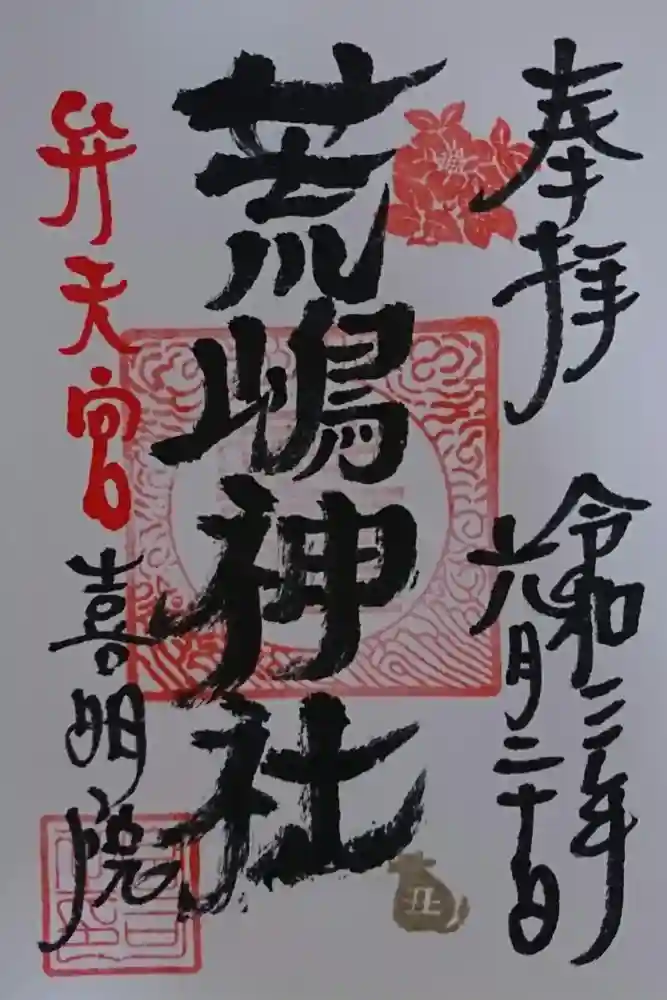 奉拝
令和三年
六月二十日
荒嶋神社
弁天宮
喜明院
丑